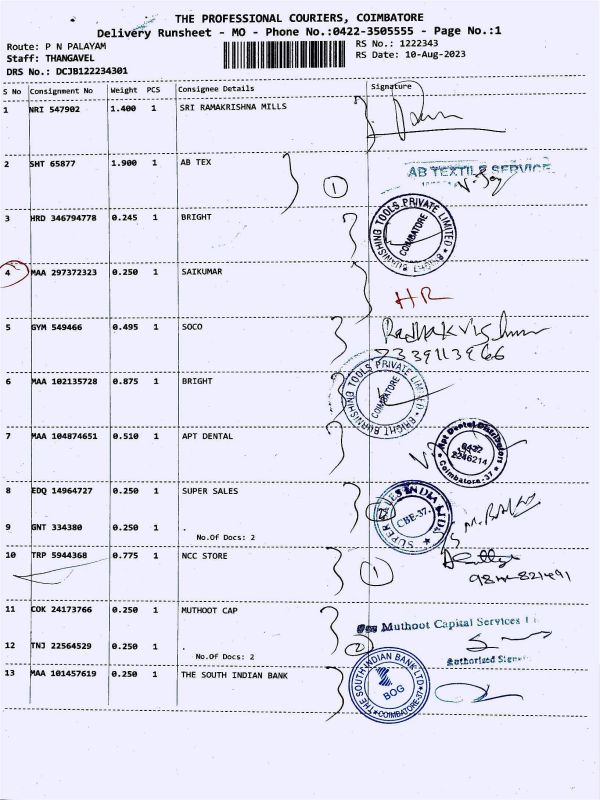 THE PROFESSIONAL COURIERS, COIMBATORE
Delivery Runsheet - MO - Phone No.:0422-3505555 - Page No.:1
Route: P N PALAYAM
RS No.: 1222343
Staff: THANGAVEL
RS Date: 10-Aug-2023
DRS No.: DCJB122234301
S No Consignment No Weight PCS Consignee Details Signature
1 NRI 547902 1.400 1 SRI RAMAKRISHNA MILLS
2 SHT 65877 1.900 1 AB TEX 1 AB TEXTILE SERVICE
3 HRD 346794778 0.245 1 BRIGHT
BRIGHT BURNISHING TOOLS PRIVATE LIMITED
COIMBATORE
4 MAA 297372323 0.250 1 SAIKUMAR
HR
5 GYM 549466 0.495 1 SOCO
7339113966
6 MAA 102135728 0.875 1 BRIGHT
BRIGHT BURNISHING TOOLS PRIVATE LIMITED
COIMBATORE
7 MAA 104874651 0.510 1 APT DENTAL
Apt Dental Distributors
0422
2246214
Coimbatore-37
8 EDQ 14964727 0.250 1 SUPER SALES 2
SUPER SALES INDIA LTD.
CBE-37.
9 GNT 334380 0.250 1 .
No.Of Docs: 2
10 TRP 5944368 0.775 1 NCC STORE 1
11 COK 24173766 0.250 1 MUTHOOT CAP
For Muthoot Capital Services
12 TNJ 22564529 0.250 1 . 2
No.Of Docs: 2
Authorised
13 MAA 101457619 0.250 1 THE SOUTH INDIAN BANK
THE SOUTH INDIAN BANK LTD
BOG
COIMBATORE-37